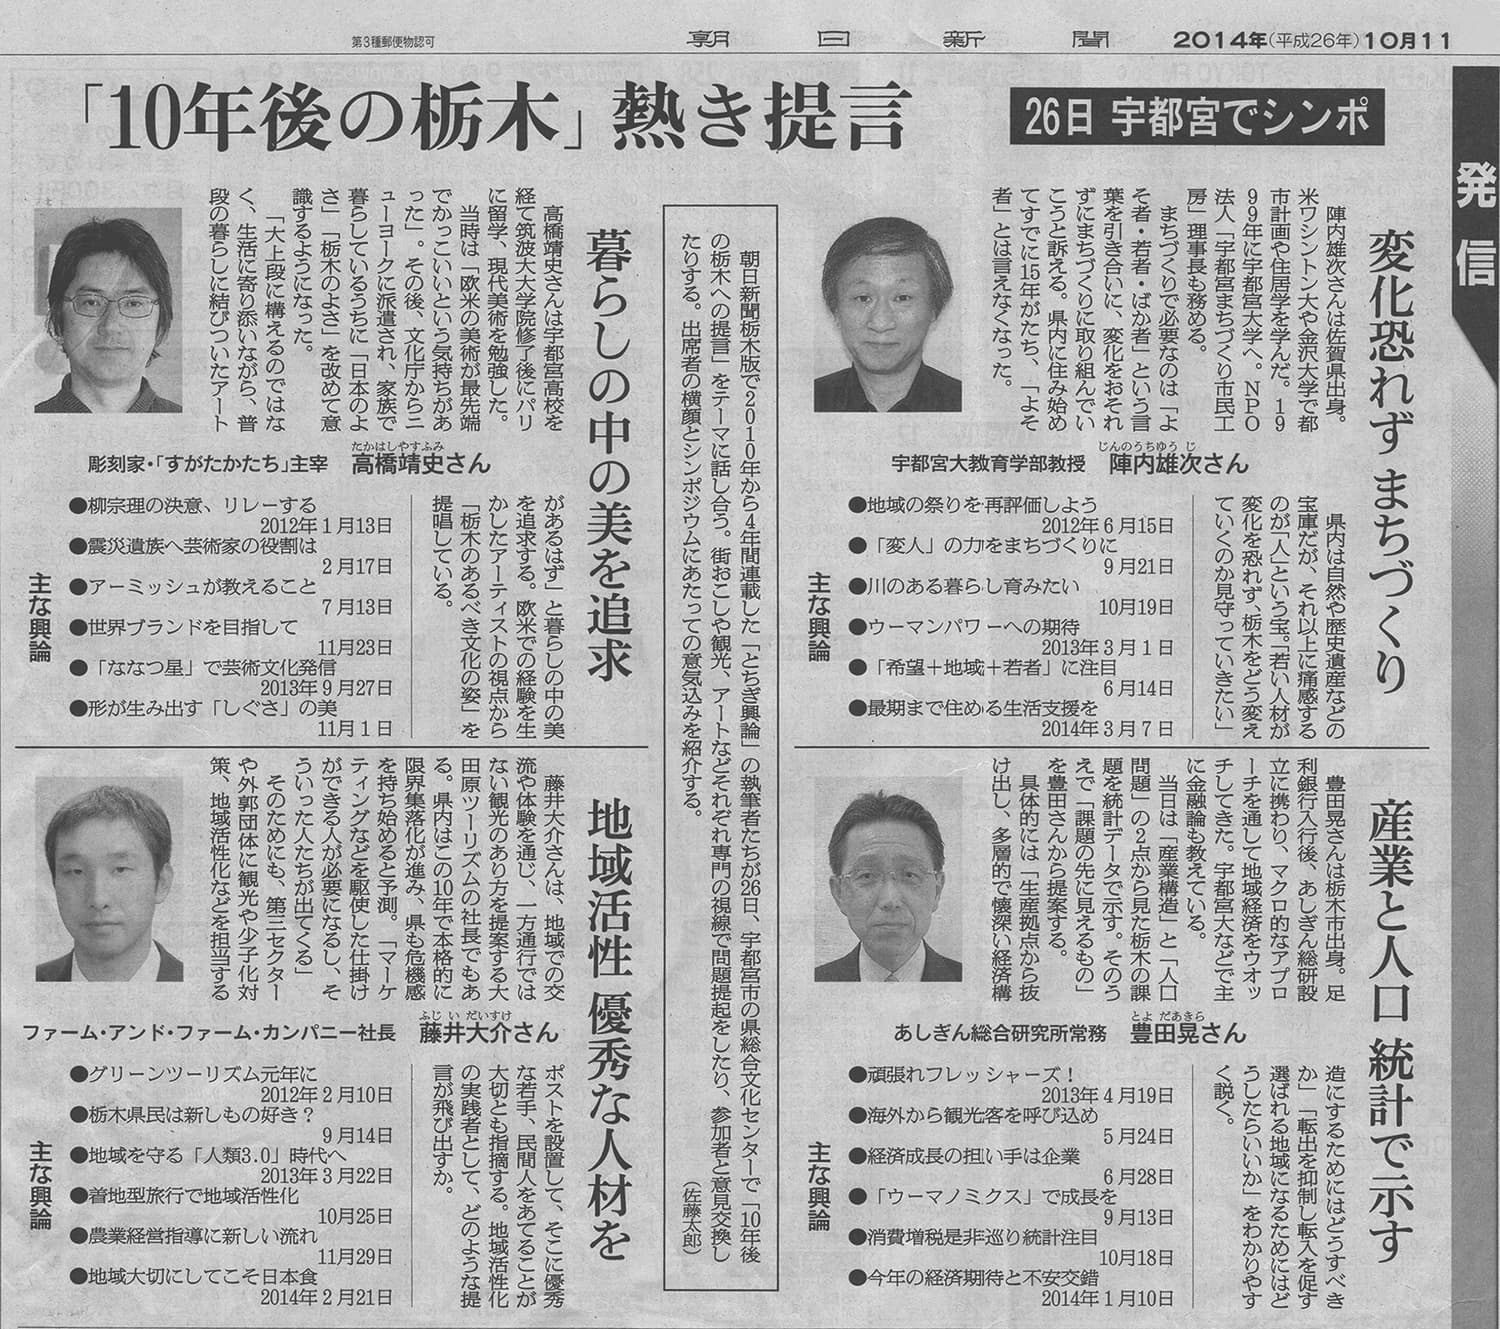 第3種郵便物認可
朝日新聞
2014年(平成26年)10月11
発信
「10年後の栃木」熱き提言
26日 宇都宮でシンポ
変化恐れずまちづくり
陣内雄次さんは佐賀県出身。
米ワシントン大や金沢大学で都
市計画や住居学を学んだ。19
99年に宇都宮大学へ。NPO
法人「宇都宮まちづくり市民工
房」理事長も務める。
まちづくりで必要なのは「よ
そ者・若者・ばか者」という言
葉を引き合いに、変化をおそれ
ずにまちづくりに取り組んでい
こうと訴える。県内に住み始め
てすでに15年がたち、「よそ
者」とは言えなくなった。
じんのうちゆうじ
宇都宮大教育学部教授 陣内雄次さん
県内は自然や歴史遺産などの
宝庫だが、それ以上に痛感する
のが「人」という宝。「若い人材が
変化を恐れず、栃木をどう変え
ていくのか見守っていきたい」
主な興論
●地域の祭りを再評価しよう
2012年6月15日
●「変人」の力をまちづくりに
9月21日
●川のある暮らし育みたい
10月19日
●ウーマンパワーへの期待
2013年3月1日
●「希望＋地域＋若者」に注目
6月14日
●最期まで住める生活支援を
2014年3月7日
朝日新聞栃木版で2010年から4年間連載した「とちぎ興論」の執筆者たちが26日、宇都宮市の県総合文化センターで「10年後
の栃木への提言」をテーマに話し合う。街おこしや観光、アートなどそれぞれ専門の視線で問題提起をしたり、参加者と意見交換し
たりする。出席者の横顔とシンポジウムにあたっての意気込みを紹介する。
（佐藤太郎）
暮らしの中の美を追求
高橋靖史さんは宇都宮高校を
経て筑波大大学院修了後にパリ
に留学、現代美術を勉強した。
当時は「欧米の美術が最先端
でかっこいいという気持ちがあ
った」。その後、文化庁からニ
ューヨークに派遣され、家族で
暮らしているうちに「日本のよ
さ」「栃木のよさ」を改めて意
識するようになった。
「大上段に構えるのではな
く、生活に寄り添いながら、普
段の暮らしに結びついたアート
たかはしやすふみ
彫刻家・「すがたかたち」主宰 高橋靖史さん
があるはず」と暮らしの中の美
を追求する。欧米での経験を生
かしたアーティストの視点から
「栃木のあるべき文化の姿」を
提唱している。
主な興論
●柳宗理の決意、リレーする
2012年1月13日
●震災遺族へ芸術家の役割は
2月17日
●アーミッシュが教えること
7月13日
●世界ブランドを目指して
11月23日
●「ななつ星」で芸術文化発信
2013年9月27日
●形が生み出す「しぐさ」の美
11月1日
産業と人口 統計で示す
豊田晃さんは栃木市出身。足
利銀行入行後、あしぎん総研設
立に携わり、マクロ的なアプロ
ーチを通して地域経済をウオッ
チしてきた。宇都宮大などで主
に金融論も教えている。
当日は「産業構造」と「人口
問題」の2点から見た栃木の課
題を統計データで示す。そのう
えで「課題の先に見えるもの」
を豊田さんから提案する。
具体的には「生産拠点から抜
け出し、多層的で懐深い経済構
とよだあきら
あしぎん総合研究所常務 豊田晃さん
造にするためにはどうすべき
か」「転出を抑制し転入を促す
選ばれる地域になるためにはど
うしたらいいか」をわかりやす
く説く。
主な興論
●頑張れフレッシャーズ！
2013年4月19日
●海外から観光客を呼び込め
5月24日
●経済成長の担い手は企業
6月28日
●「ウーマノミクス」で成長を
9月13日
●消費増税是非巡り統計注目
10月18日
●今年の経済期待と不安交錯
2014年1月10日
地域活性 優秀な人材を
藤井大介さんは、地域での交
流や体験を通じ、一方通行では
ない観光のあり方を提案する大
田原ツーリズムの社長でもあ
る。県内はこの10年で本格的に
限界集落化が進み、県も危機感
を持ち始めると予測。「マーケ
ティングなどを駆使した仕掛け
ができる人が必要になるし、そ
ういった人たちが出てくる」
そのためにも、第三セクター
や外郭団体に観光や少子化対
策、地域活性化などを担当する
ふじいだいすけ
ファーム・アンド・ファーム・カンパニー社長 藤井大介さん
ポストを設置して、そこに優秀
な若手、民間人をあてることが
大切とも指摘する。地域活性化
の実践者として、どのような提
言が飛び出すか。
主な興論
●グリーンツーリズム元年に
2012年2月10日
●栃木県民は新しもの好き？
9月14日
●地域を守る「人類3.0」時代へ
2013年3月22日
●着地型旅行で地域活性化
10月25日
●農業経営指導に新しい流れ
11月29日
●地域大切にしてこそ日本食
2014年2月21日